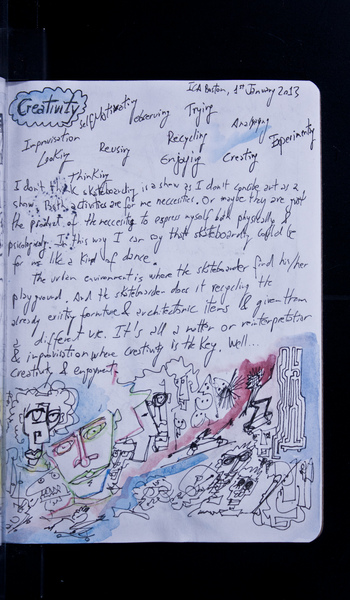 ICA Boston, 1st January 2013
Creativity Self Motivation observing Trying
Analyzing
Improvisation Reusing Recycling Experimenting
Looking Enjoying Creating
Thinking
I don't think skateboarding is a show as I don't conscibe art as a
show. Both activities are for me neccesities. Or maybe they are just
the product of the neccesity to express myself both physically &
psicologicaly. In this way I can say that skateboarding could be
for me like a kind of dance.
The urban environment is where the skateboarder find his/her
playground. And the skateboarder does it recycling the
already existing forniture & architectonic items & given them
a different use. It's all a matter or reinterpretation
& improvisation where creativity is the key. Well...
creativity & enjoyment.